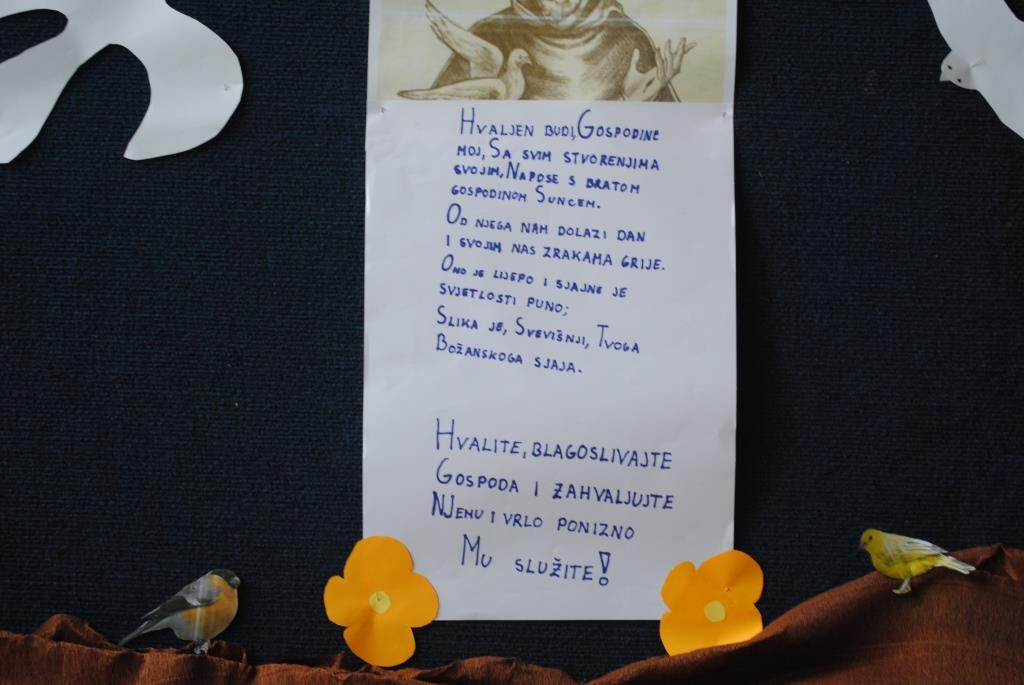 Hvaljen budi, Gospodine
moj, Sa svim stvorenjima
svojim, Napose s bratom
gospodinom Suncem.
Od njega nam dolazi dan
i svojim nas zrakama grije.
Ono je lijepo i sjajne je
svjetlosti puno;
Slika je, Svevišnji, Tvoga
Božanskoga sjaja.
Hvalite, blagoslivajte
Gospoda i zahvaljujte
Njemu i vrlo ponizno
Mu služite!